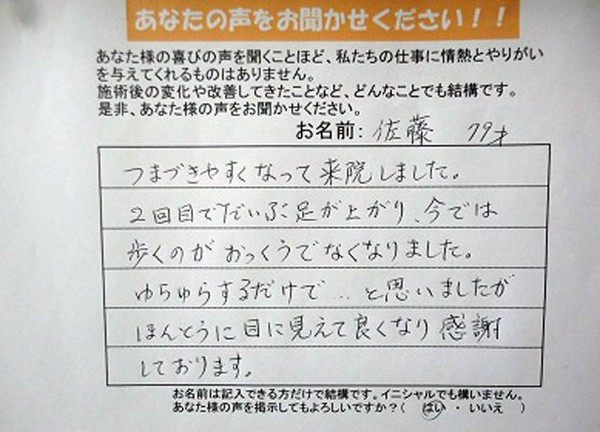 あなたの声をお聞かせください！！
あなた様の喜びの声を聞くことほど、私たちの仕事に情熱とやりがい
を与えてくれるものはありません。
施術後の変化や改善してきたことなど、どんなことでも結構です。
是非、あなた様の声をお聞かせください。
お名前：佐藤 79才
つまづきやすくなって来院しました。
2回目でだいぶ足が上がり、今では
歩くのがおっくうでなくなりました。
ゆらゆらするだけで…と思いましたが
ほんとうに目に見えて良くなり感謝
しております。
お名前は記入できる方だけで結構です。イニシャルでも構いません。
あなた様の声を掲示してもよろしいですか？（ はい ・ いいえ ）